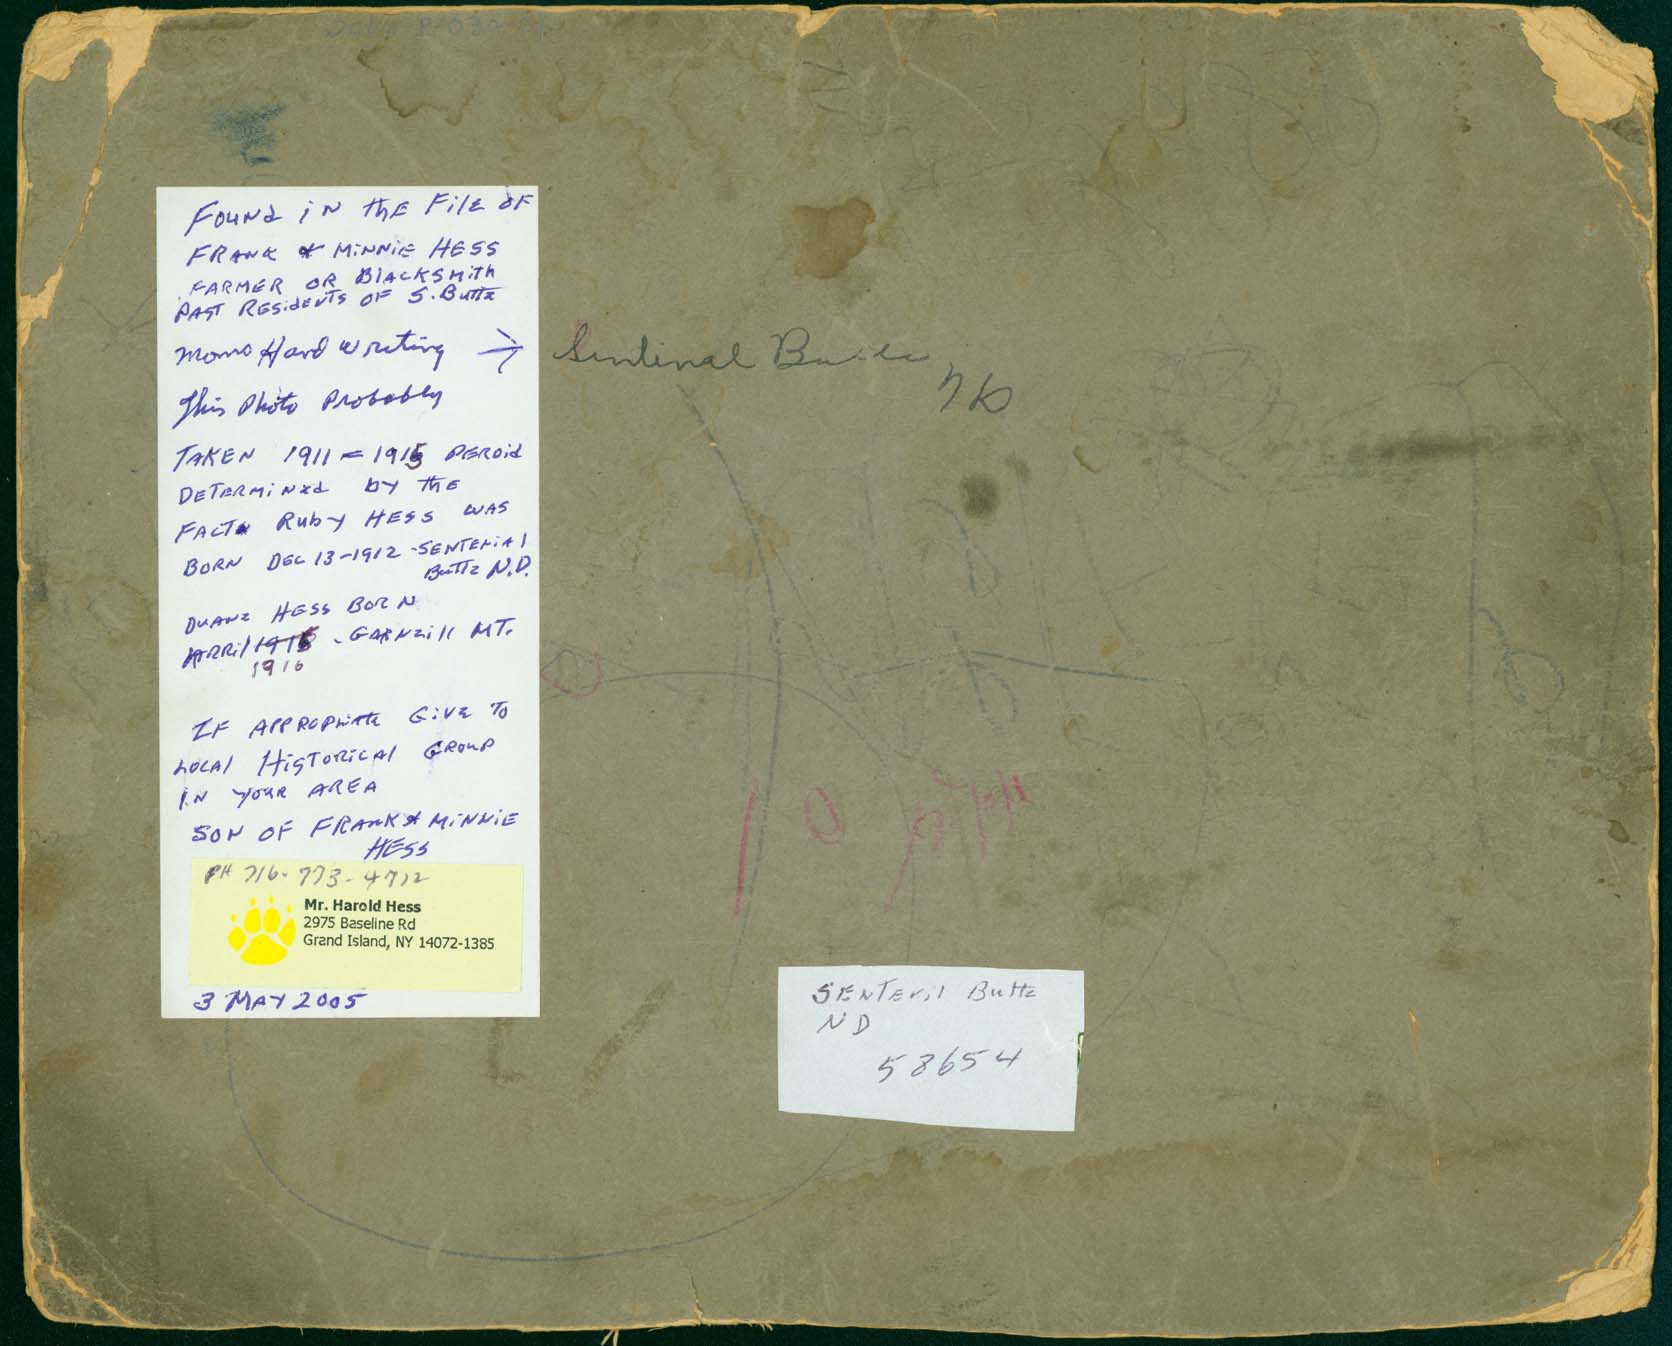 Found in the File of
Frank & Minnie Hess
Farmer or Blacksmith
Past Residents of S. Butte
Moms Hand Writing →
This Photo Probably
Taken 1911 = 1915 Peroid
Determined by the
Fact Ruby Hess was
Born Dec 13-1912 - Sentenial
Butte N.D.
Duane Hess Born
April 1915 - Garneill MT.
1916
If Appropriate Give to
Local Historical Group
in your area
Son of Frank & Minnie
Hess
PH 716-773-4712
Mr. Harold Hess
2975 Baseline Rd
Grand Island, NY 14072-1385
3 May 2005
Sentinal Butte
ND
Sentenil Butte
ND
58654